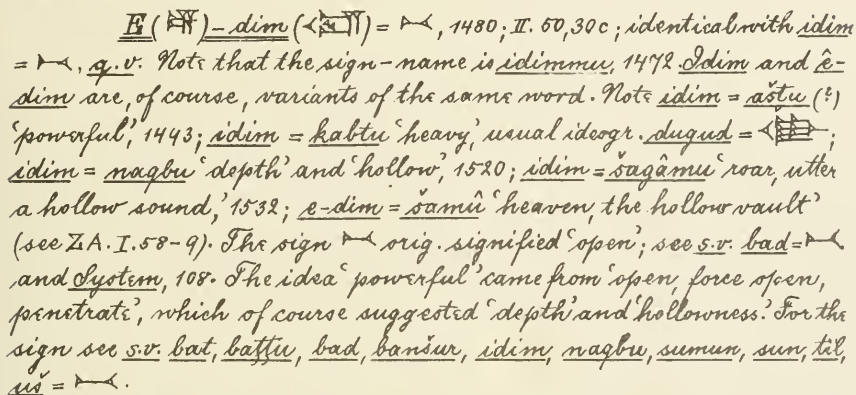 E (𒂍)-dim (𒁴) = 𒁁, 1480; II. 50, 30c; identical with idim
= 𒁁, q.v. Note that the sign-name is idimmu, 1472. Idim and ê-
dim are, of course, variants of the same word. Note idim = aštu (?)
'powerful', 1443; idim = kabtu 'heavy,' usual ideogr. dugud = 𒂂;
idim = nagbu 'depth' and 'hollow', 1520; idim = šagâmu 'roar, utter
a hollow sound,' 1532; e-dim = šamû 'heaven, the hollow vault'
(see ZA. I. 58-9). The sign 𒁁 orig. signified 'open'; see s.v. bad = 𒁁
and System, 108. The idea 'powerful' came from 'open, force open,
penetrate', which of course suggested 'depth' and 'hollowness.' For the
sign see s.v. bat, baṭṭu, bad, banšur, idim, nagbu, sumun, sun, til,
uš = 𒁁.